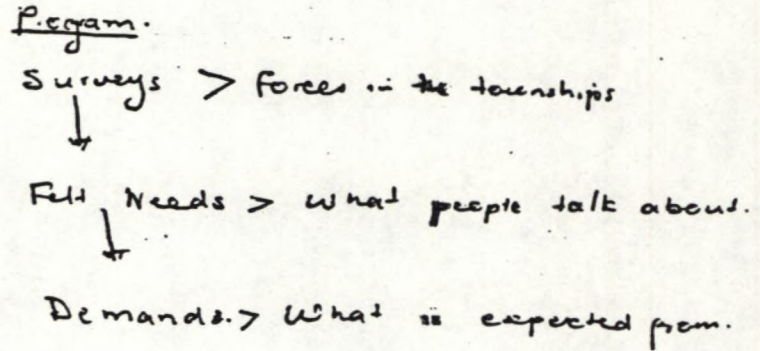 Surveys > Forces in the townships
↓
Felt Needs > What people talk about.
↓
Demands. > What is expected from.